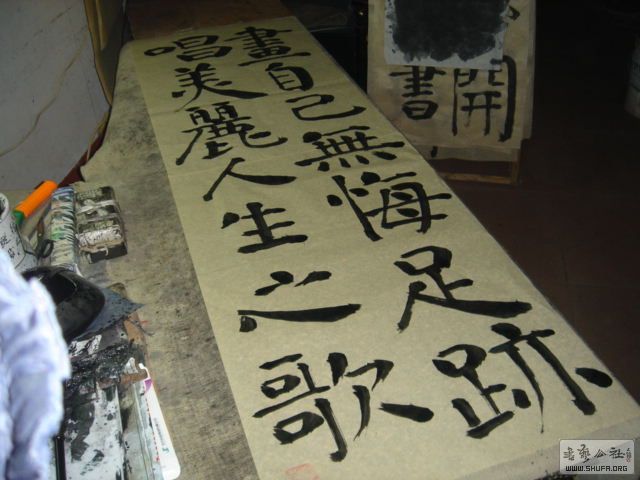 畫自己無悔足跡
唱美麗人生之歌
開
書
書藝公社
WWW.SHUFA.ORG